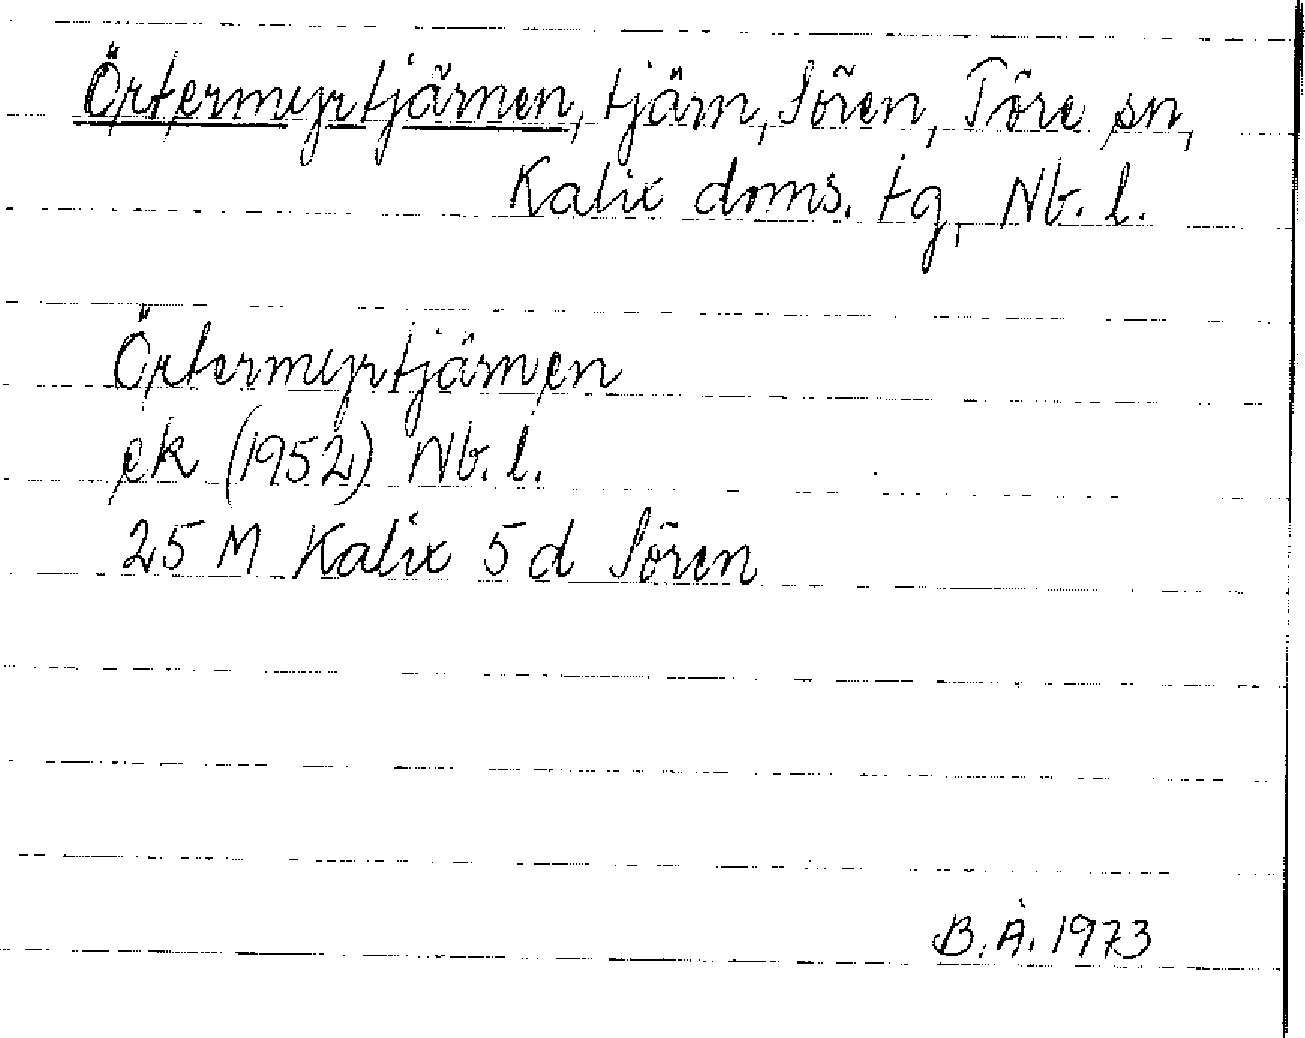 Örtermyrtjärnen, tjärn, Sören, Töre sn,
Kalix doms. tg, Nb. l.
Örtermyrtjärnen
ek (1952) Nb. l.
25 M Kalix 5 d Sören
B. Å. 1973